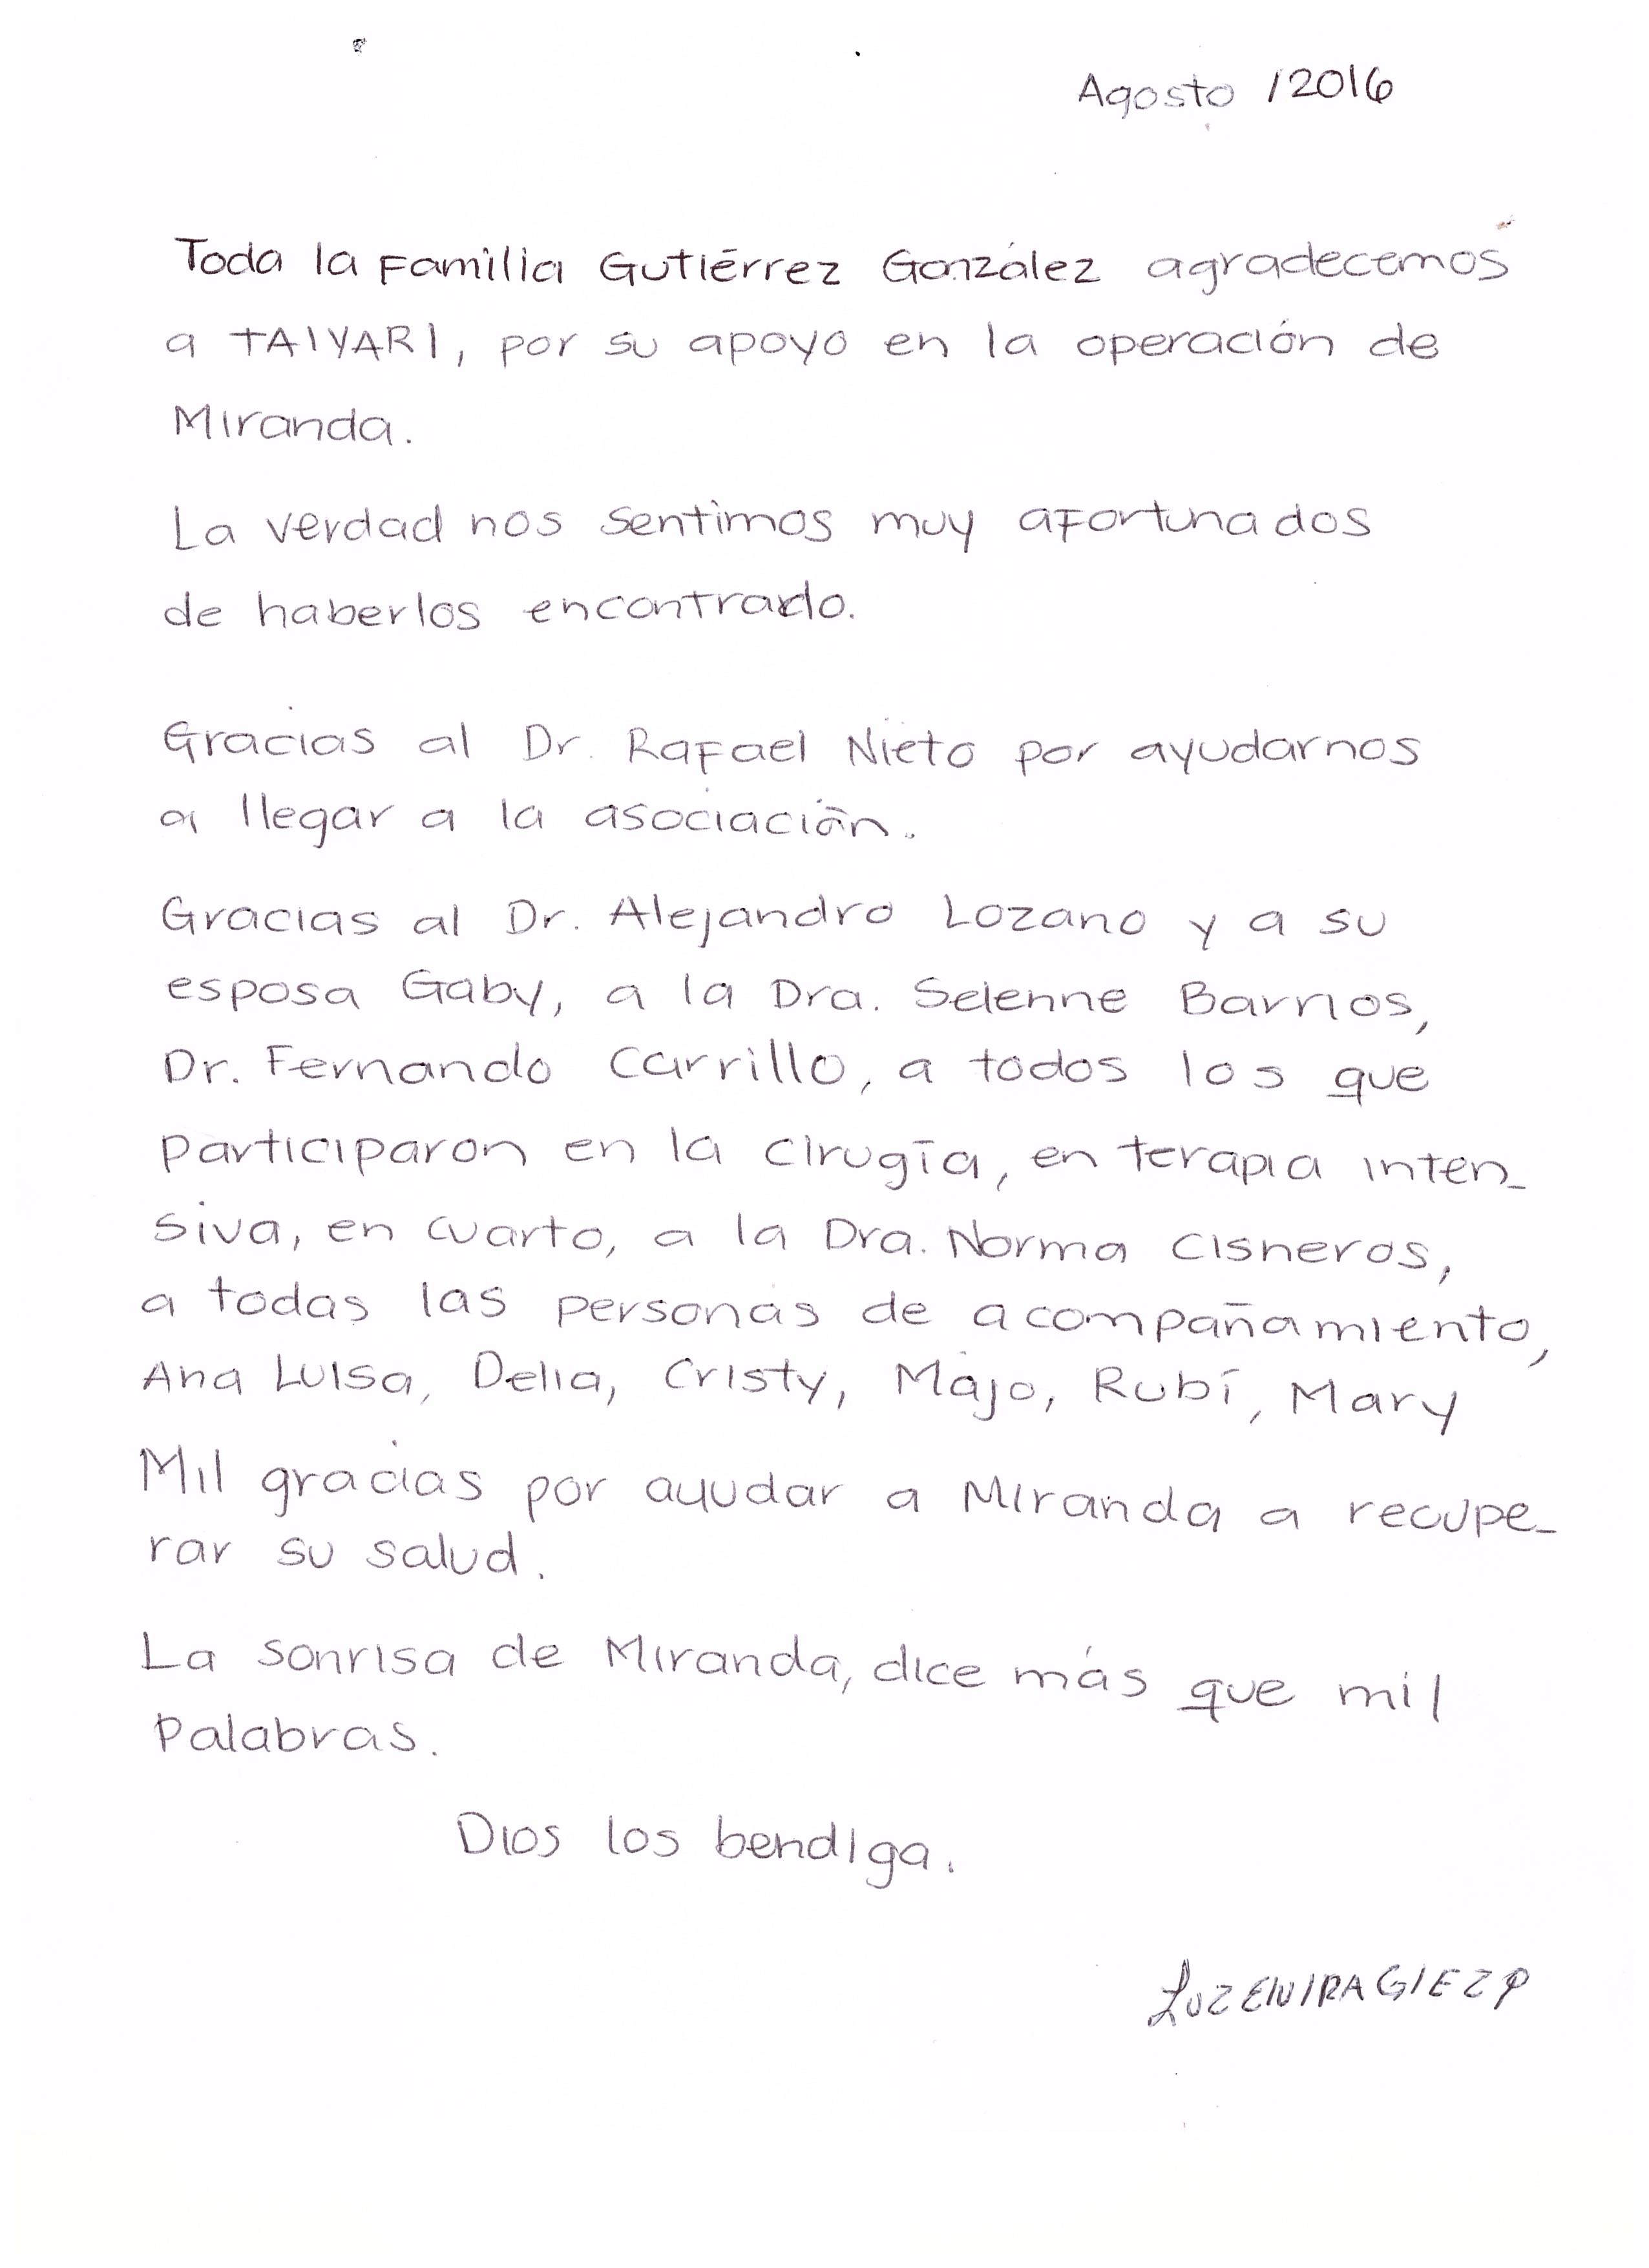 Agosto /2016
Toda la Familia Gutiérrez González agradecemos
a TAIYARI, por su apoyo en la operación de
Miranda.
La verdad nos sentimos muy afortunados
de haberlos encontrado.
Gracias al Dr. Rafael Nieto por ayudarnos
a llegar a la asociación.
Gracias al Dr. Alejandro Lozano y a su
esposa Gaby, a la Dra. Selenne Barrios,
Dr. Fernando Carrillo, a todos los que
participaron en la cirugía, en terapia inten-
siva, en cuarto, a la Dra. Norma Cisneros,
a todas las personas de acompañamiento,
Ana Luisa, Delia, Cristy, Majo, Rubí, Mary
Mil gracias por ayudar a Miranda a recupe-
rar su salud.
La sonrisa de Miranda, dice más que mil
Palabras.
Dios los bendiga.